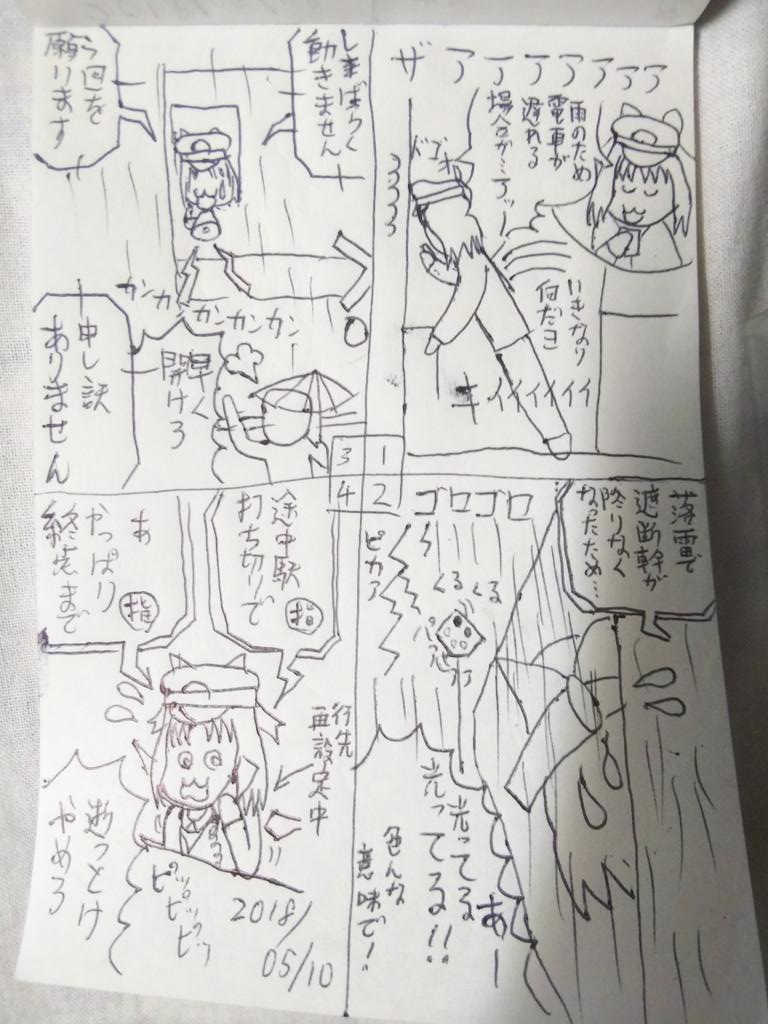 ザアアアアアアア
雨のため
電車が
遅れる
場合が…アッー
ドゴォ
いきなり
何だヨ
キイイイイイイ
1
2
3
4
落雷で
遮断幹が
降りなく
なったため…
ゴロゴロ
ピカア
くるくる
あー
光ってる
光ってる!!
色んな
意味で!
しまばらく
動きません
今回を
願います
カンカ
カンカンカン
早く
開けろ
申し訳
ありません
途中駅
打ち切りで
指
あ
やっぱり
終着まで
指
行先
再設定中
逝っとけ
やめろ
ピッピッ
ピピッ
2018/
05/10